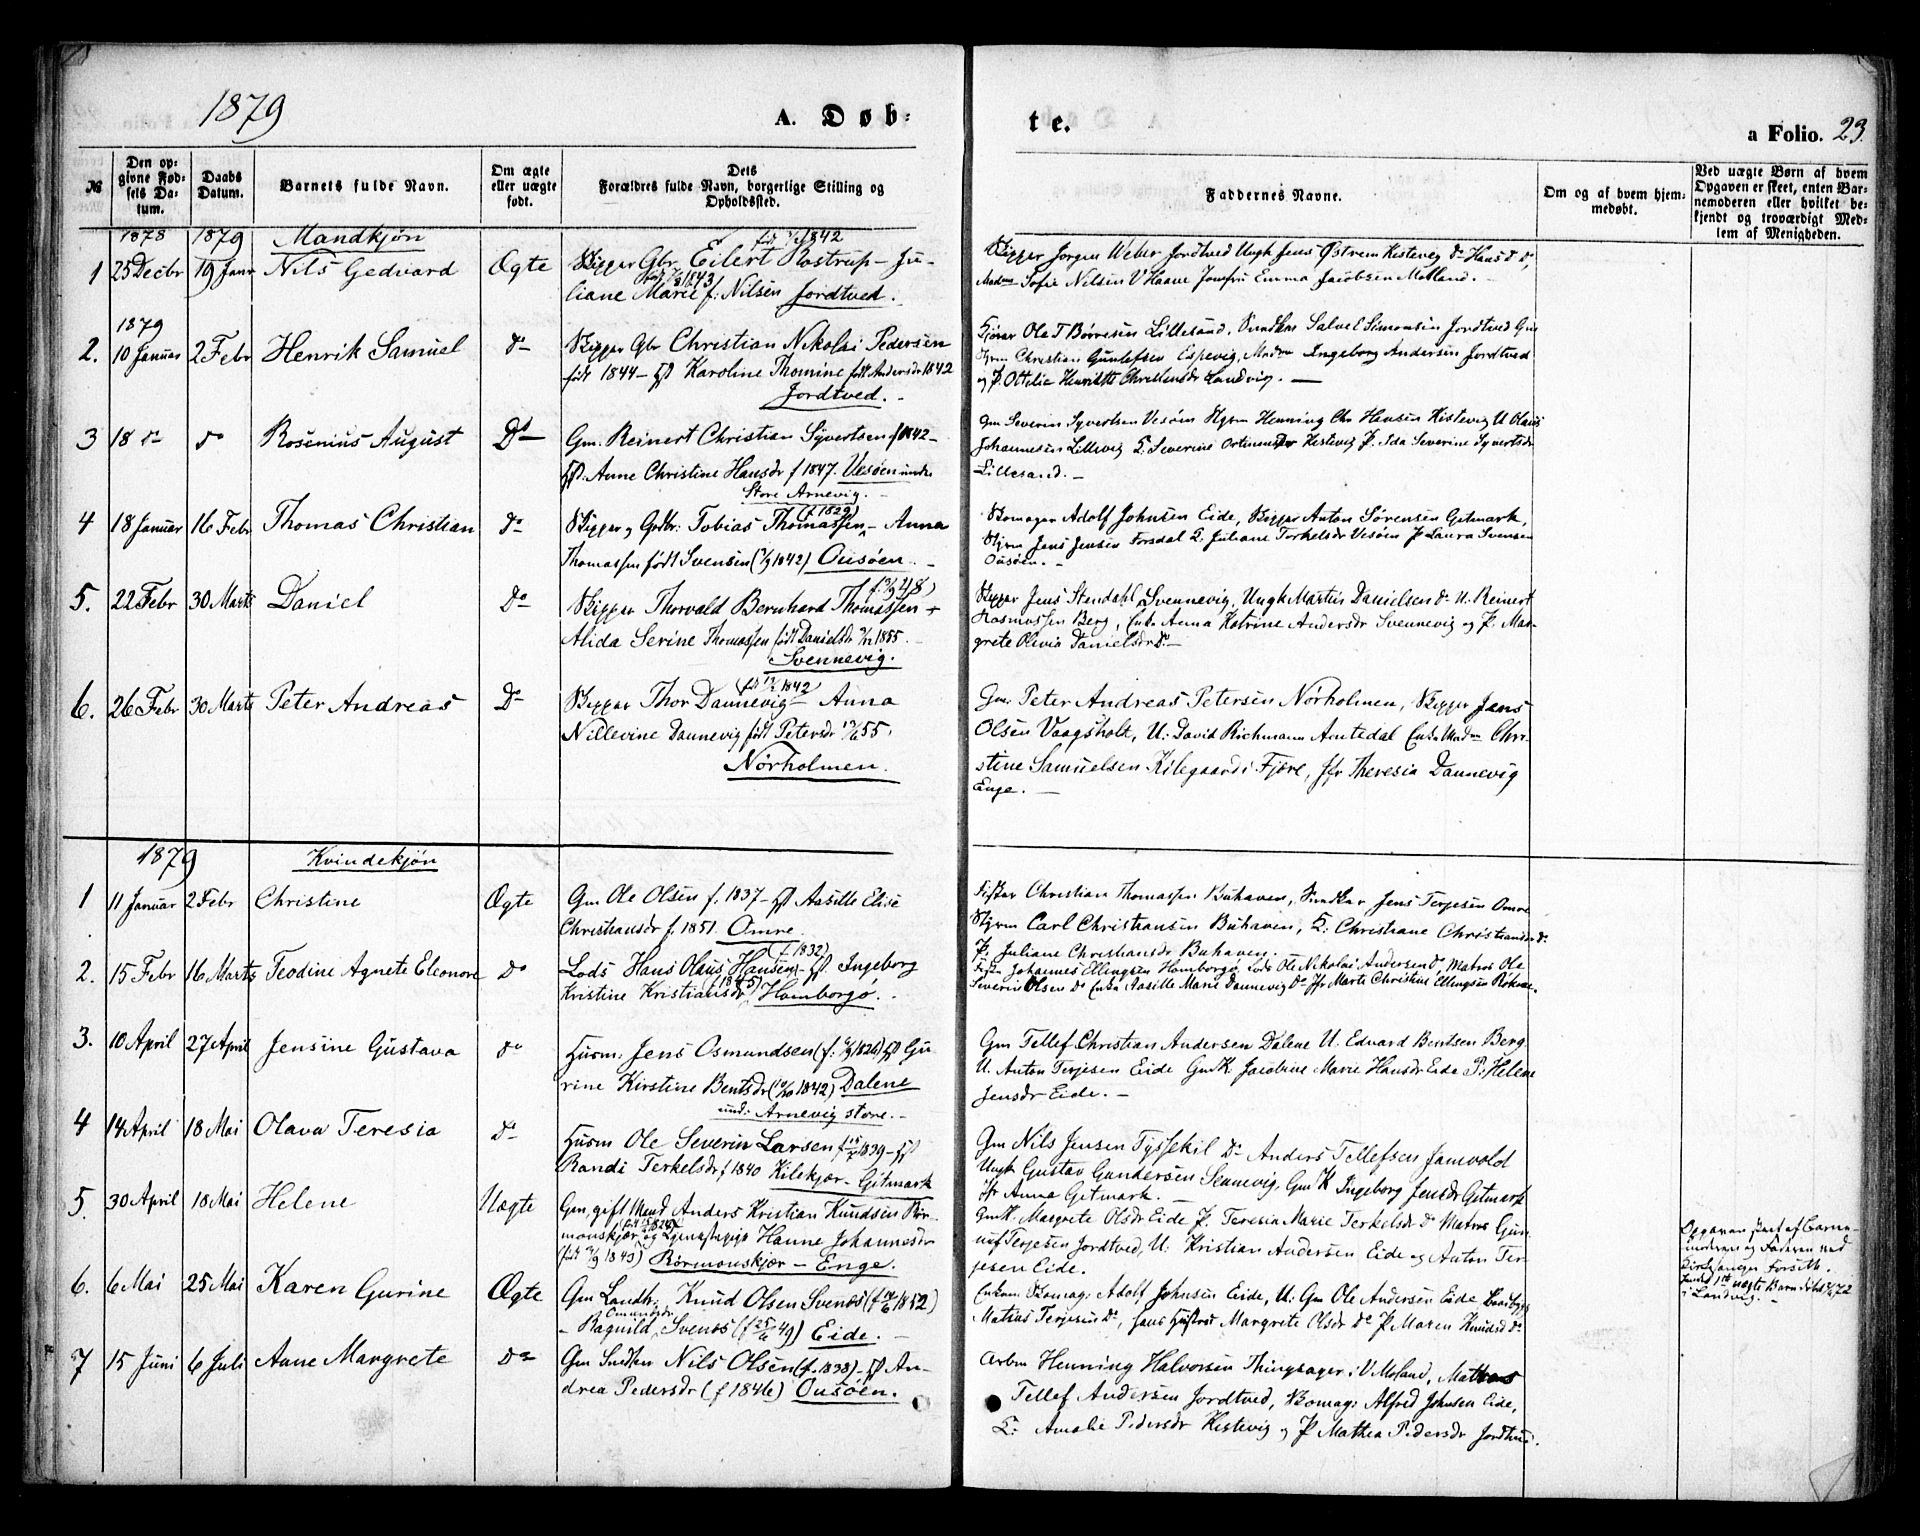 1879
A. Døb-
te.
a Folio. 23.
№
Den opgivne Fødsels Datum.
Daabs Datum.
Barnets fulde Navn.
Om ægte eller uægte født.
Dets Forældres fulde Navn, borgerlige Stilling og Opholdssted.
Faddernes Navne.
Om og af hvem hjemmedøbt.
Ved uægte Børn af hvem Opgaven er skeet, enten Barnemoderen eller hvilket bekjendt og troværdigt Medlem af Menigheden.
1878 1879 Mandkjøn
1 25 Decbr 19 Janr Nils Gedvard Ægte Skipper Gbr. Eilert Rostrup - Ju-
liane Marie f. Nilsen Jordtved.
Skipper Jørgen Weber Jordtved Ungk Jens Østrem Kistevig Do Hans Do Do,
Sofie Nilsen V Haave Jomfru Emma Jacobsen Molland. -
1879
2. 10 Januar 2 Febr Henrik Samuel do Skipper Gbr Christian Nikolai Pedersen
født 1844 - Karoline Thomine født Andersdr 1842
Jordtved. -
Ole T Børresen Lillesand, Salve E Simonsen Jordtved
Styrm Christian Guntefsen Espevig, Ingeborg Andersen Jordtved
og P. Ottelie Henriette Landvig. -
3 18 do do Rosenius August Do Gm. Reinert Christian Syvertsen f 1842 -
Anne Christine Hansdr f 1847. Vesøen under
Store Arnevig. -
Gm Severin Syvertsen Vesøen Styrm Henning Chr Hansen Kistevig U Olaus
Johannesen Lillevig K. Severine Kistevig P. Ida Severine Syvertsdr
Lillesand. -
4 18 Januar 16 Febr Thomas Christian Do Skipper og Gbr: Tobias Thomassen (f 1829) - Anna
Thomassen født Svensen (1842) Ousøen. -
Skomager Adolf Johnsen Eide, Skipper Anton Sørensen Gitmark,
Styrm Jens Jensen Forsdal K. Juliane Torkelsdr Vesøen P Laura Svensen
Ousøen. -
5. 22 Febr 30 Marts Daniel Do Skipper Thorvald Bernhard Thomassen
Alida Serine Thomassen født Danielsdr 1855. -
Svennevig.
Skipper Jens Stendahl Svennevig, Ungk Martin Danielsen Do U. Reinert
Rasmussen Berg, Enke Anna Katrine Andersdr Svennevig og P. Mar-
grete Olivia Danielsdr Do -
6. 26 Febr 30 Marts Peter Andreas Do Skipper Thor Dannevig - Anna
Nillevine Dannevig født Petersdr 55.
Nørholmen.
Gm. Peter Andreas Petersen Nørholmen, Skipper Jens
Olsen Vaagsholt, U. David Richmann Arntedal Enke Madm Chri-
stine Samuelsen Kilegaard i Fjære, Jfr Theresia Dannevig
Enge. -
1879 Kvindekjøn
1 11 Januar 2 Febr Christine Ægte Gm Ole Olsen f. 1837 - Aasille Elise
Christiansdr f. 1851. Omre.
Fisker Christian Thomassen Buhaven, Jens Terjesen Omre
Styrm Carl Christiansen Buhaven, K. Christiane Christiansdr Do
P. Juliane Christiansdr Buhaven.
2. 15 Febr 16 Marts Teodine Agnete Eleonore Do Lods Hans Olaus Hansen (f. 1832) - Ingeborg
Kristine Kristiansdr Homborgø. -
Johannes Ellingsen Homborgø, Lods Ole Nikolai Andersen Do, Matros Ole
Severin Olsen Do Enke Aasille Marie Dannevig Do Jfr Marte Christine Ellingsen
3. 10 April 27 April Jensine Gustava do Husm: Jens Osmundsen (f. 1826) Gu-
rine Kirstine Bentsdr (1842) Dalene
und: Arnevig store. -
Gm Tellef Christian Andersen Dalene U. Edvard Bentsen Berg
U. Anton Terjesen Eide GmK Jacobine Marie Hansdr Eide P. Helene
Jensdr Eide. -
4 14 April 18 Mai Olava Teresia do Husm Ole Severin Larsen f 1839 -
Randi Terkelsdr f 1840 Kilekjær - Gitmark
Gm Nils Jensen Tyssekil Do Anders Tellefsen Jamvold
Ungk Gustav Gundersen Sennevig, GmK Ingeborg Jensdr Gitmark
Jfr Anna Gitmark. -
5. 30 April 18 Mai Helene Uægte Gm, gift Mand Anders Kristian Knudsen Rør-
monskjær og Hanne Johannesdr
(født 1843) Rørmonskjær - Enge.
GmK. Margrete Olsdr Eide P. Teresia Marie Terkelsdr Do Matros Gun-
nuf Terjesen Jordtved, U: Kristian Andersen Eide og Anton Ter-
jesen Eide.
Opgaven skeet af Barne-
moderen og Faderen ved
6. 6 Mai 25 Mai Karen Gurine Ægte Gm Landh. Knud Olsen Svenes (f 1852)
- Ragnild Svenes Eide. -
Skomag: Adolf Johnsen Eide, U: Gm Ole Andersen Eide
Matias Terjesen Do, Margrete Olsdr Do P Maren Knudsd Do
7 15 Juni 6 Juli Anne Margrete Do Gm Nils Olsen (f. 1838) - An-
drea Pedersdr (f 1846) Ousøen.
Arbm Henning Halvorsen Thingsager i V. Moland, Matros
Tellef Andersen Jordtved, Skomag: Alfred Johnsen Eide,
K: Amalie Pedersdr Kistevig og P Mathea Pedersdr